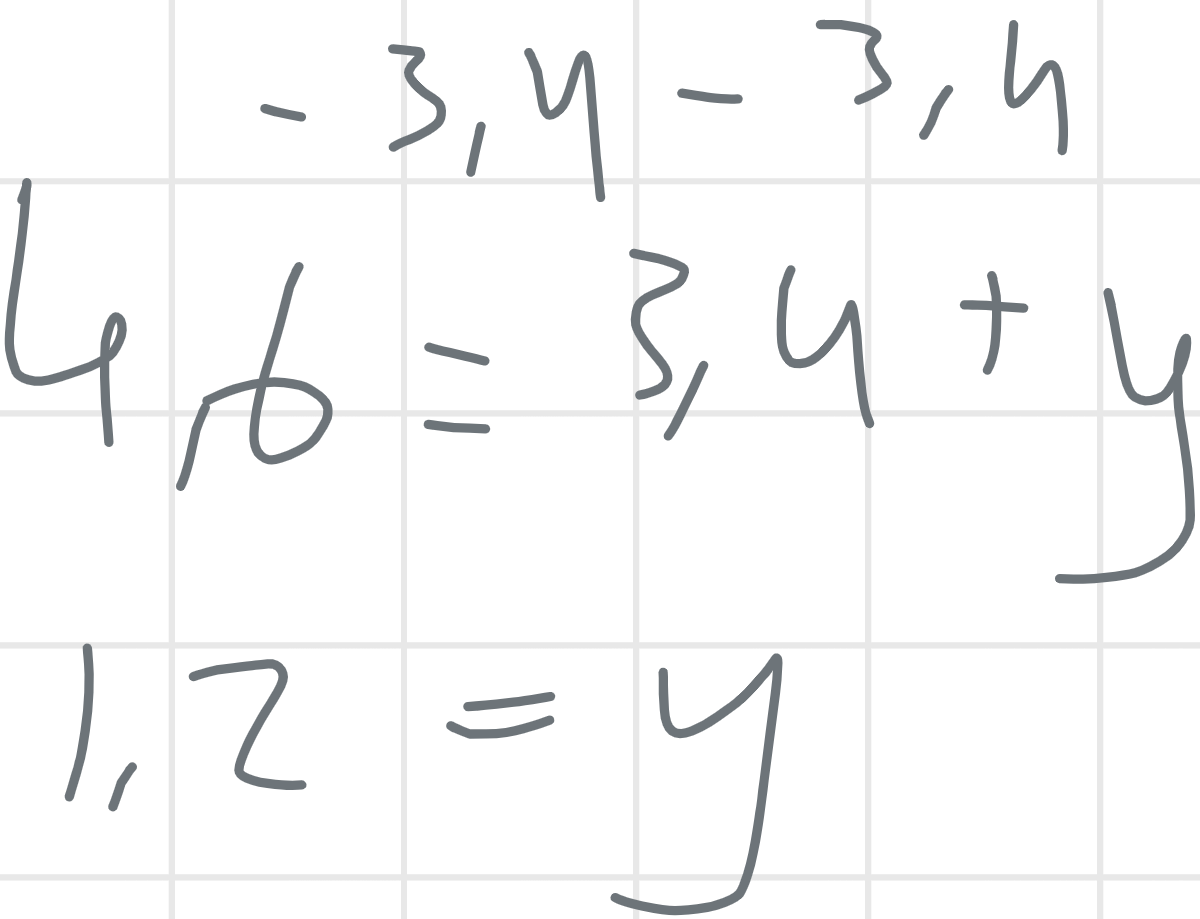 - 3,4 - 3,4
4,6 = 3,4 + y
1,2 = y